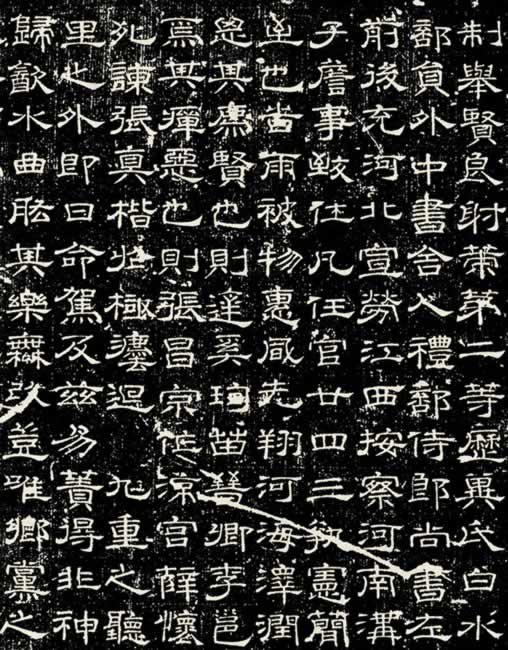 制舉賢良射策第二等歷冀氏白水
部員外中書舍人禮部侍郎尚書左
前後充河北宣勞江西按察河南溝
子詹事致仕凡任官廿四三執憲簡
也旹雨被物惠風先翔河海澤潤
其薦賢也則達奚珣苗晉卿李邕
焉其癉惡也則張昌宗作涼宮薛懷
死諫張真楷極迴 九重之聽
里之外即日命駕及茲易簀得非神
歸㱃水曲肱其樂無改豈唯鄉黨之